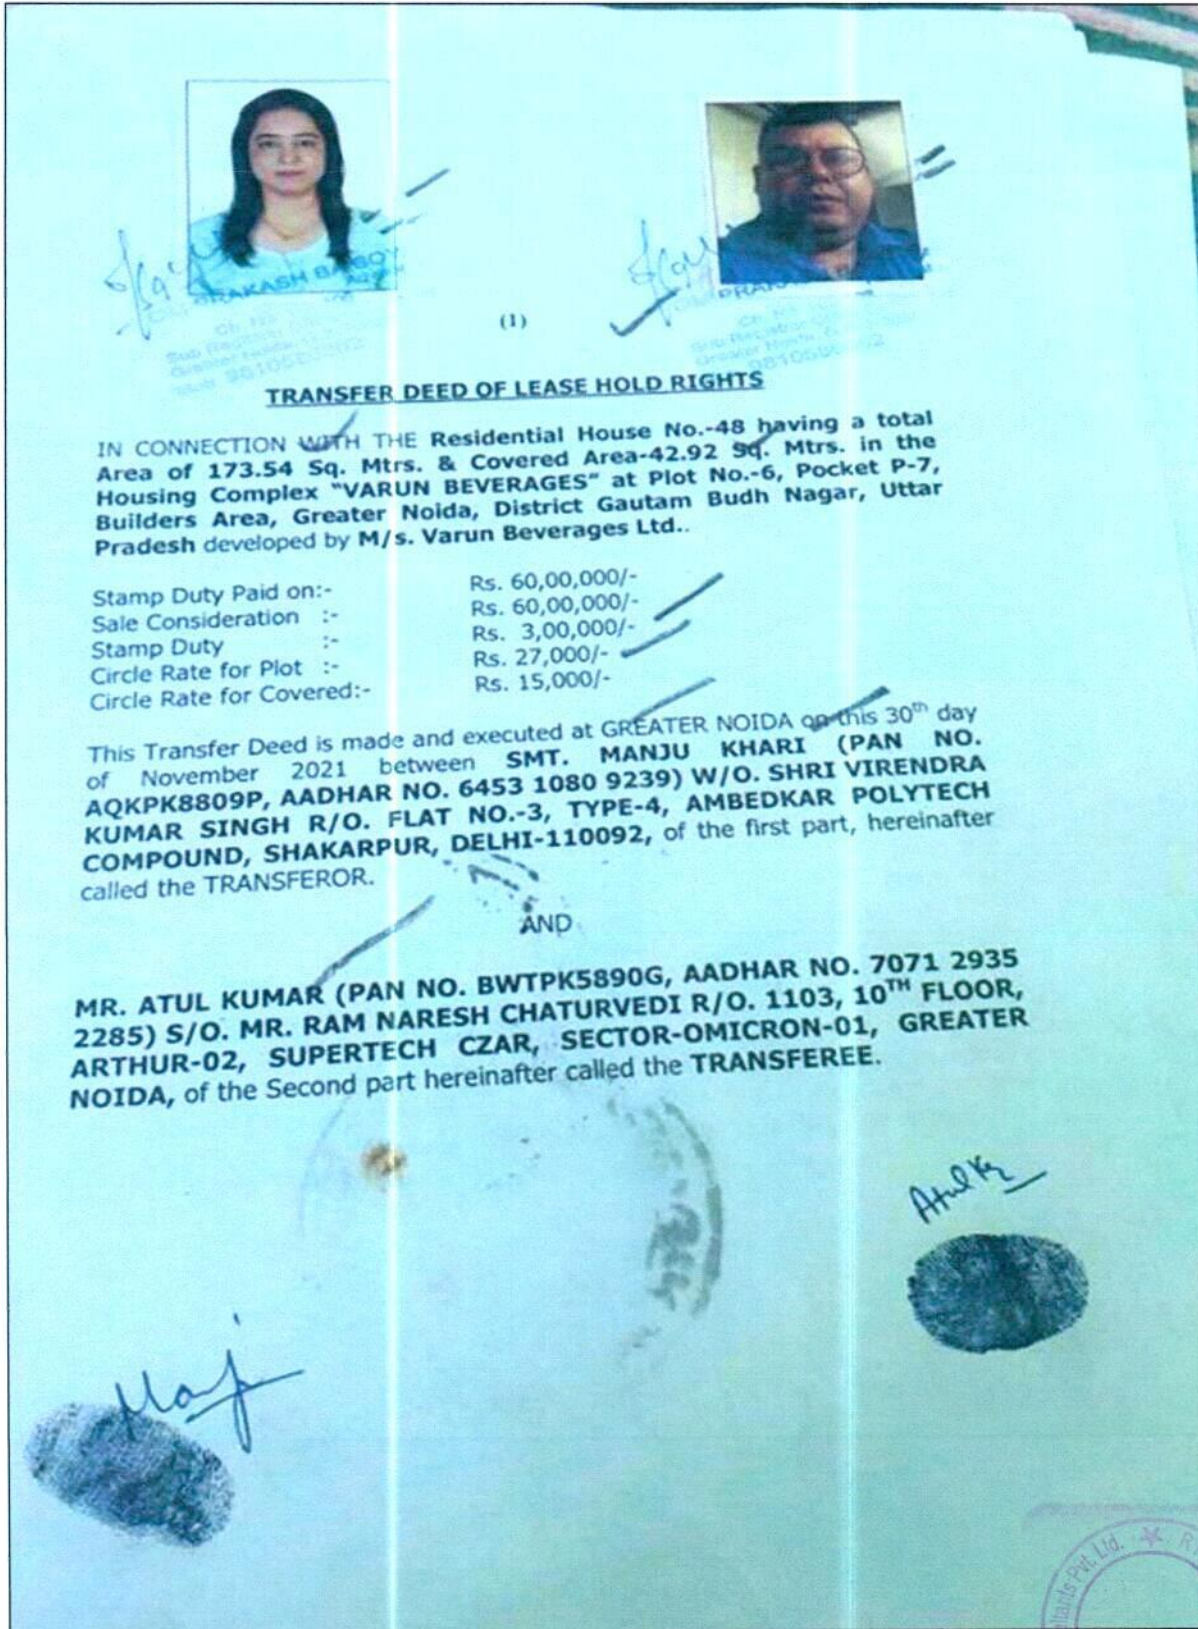 (1)
TRANSFER DEED OF LEASE HOLD RIGHTS
IN CONNECTION WITH THE Residential House No.-48 having a total
Area of 173.54 Sq. Mtrs. & Covered Area-42.92 Sq. Mtrs. in the
Housing Complex "VARUN BEVERAGES" at Plot No.-6, Pocket P-7,
Builders Area, Greater Noida, District Gautam Budh Nagar, Uttar
Pradesh developed by M/s. Varun Beverages Ltd..
Stamp Duty Paid on:- Rs. 60,00,000/-
Sale Consideration :- Rs. 60,00,000/-
Stamp Duty :- Rs. 3,00,000/-
Circle Rate for Plot :- Rs. 27,000/-
Circle Rate for Covered:- Rs. 15,000/-
This Transfer Deed is made and executed at GREATER NOIDA on this 30th day
of November 2021 between SMT. MANJU KHARI (PAN NO.
AQKPK8809P, AADHAR NO. 6453 1080 9239) W/O. SHRI VIRENDRA
KUMAR SINGH R/O. FLAT NO.-3, TYPE-4, AMBEDKAR POLYTECH
COMPOUND, SHAKARPUR, DELHI-110092, of the first part, hereinafter
called the TRANSFEROR.
AND
MR. ATUL KUMAR (PAN NO. BWTPK5890G, AADHAR NO. 7071 2935
2285) S/O. MR. RAM NARESH CHATURVEDI R/O. 1103, 10TH FLOOR,
ARTHUR-02, SUPERTECH CZAR, SECTOR-OMICRON-01, GREATER
NOIDA, of the Second part hereinafter called the TRANSFEREE.
Atul Kr
Manju
Pvt. Ltd.